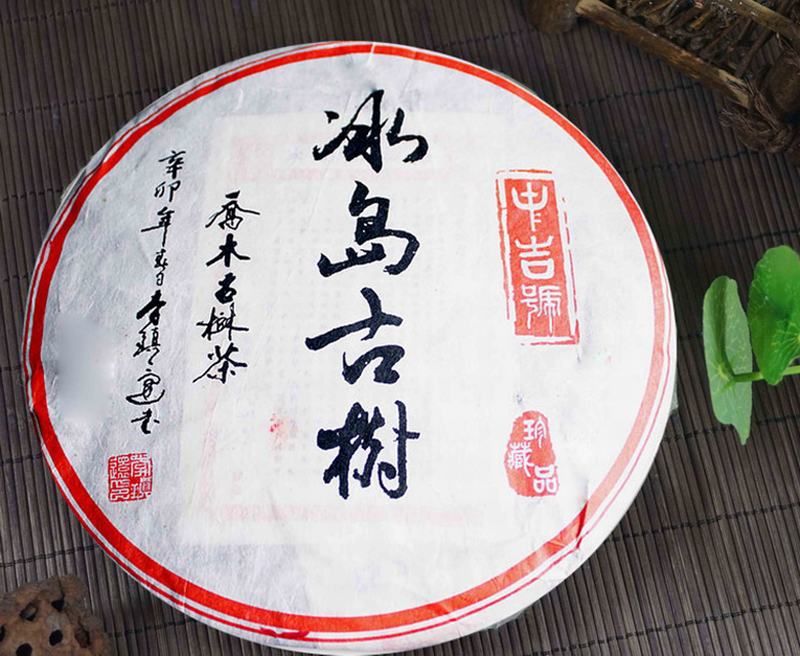 中吉號
珍藏品
冰島古樹
喬木古樹茶
辛卯年春日李鎮